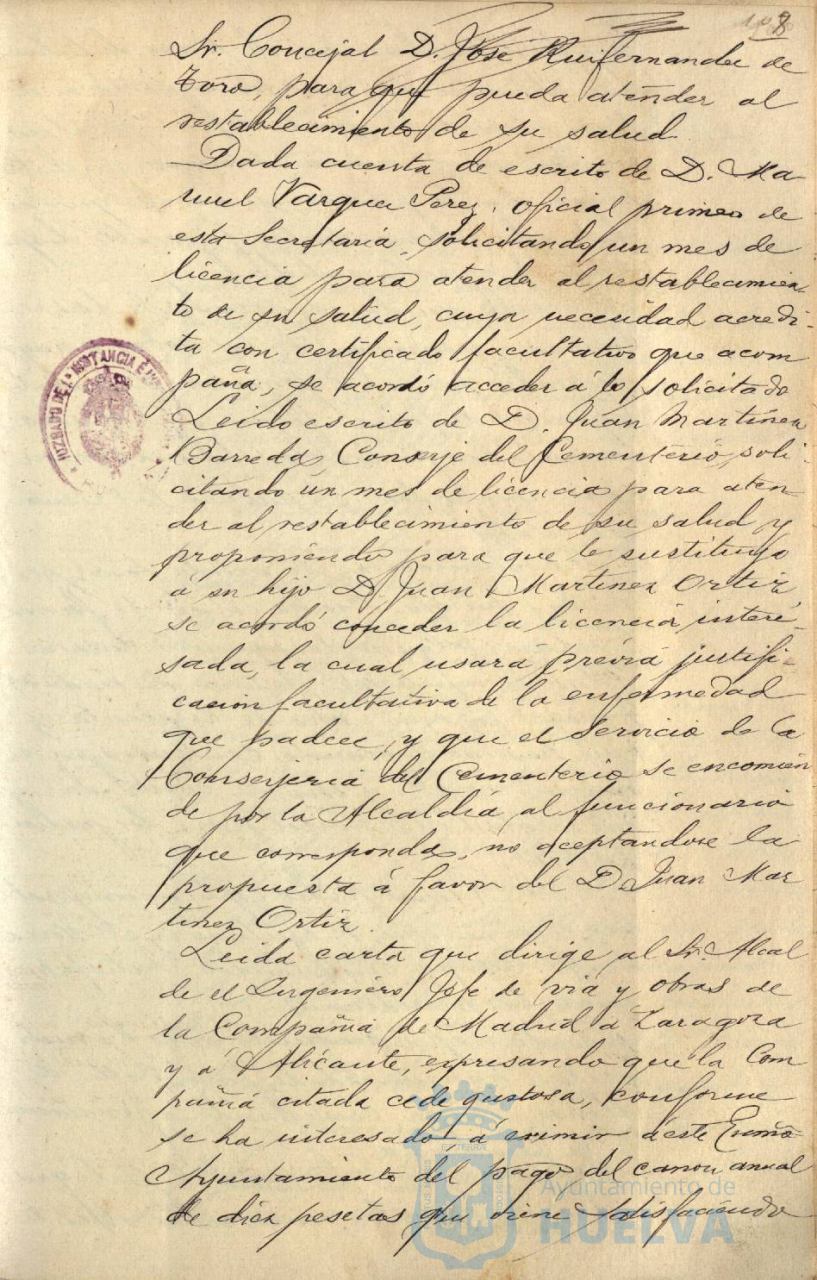 8
Sr. Concejal D. José Ruifernandez de
Toro, para que pueda atender al
restablecimiento de su salud
Dada cuenta de escrito de D. Ma
nuel Vargue Perez, oficial primero de
esta Secretaría, solicitando un mes de
licencia para atender al restablecimien-
to de su salud, cuya necesidad acredi-
ta con certificado facultativo que acom
paña, se acordó acceder á lo solicitado
Leido escrito de D. Juan Martinez
Barreda, Conserje del Cementerio, soli-
citando un mes de licencia para aten-
der al restablecimiento de su salud y
proponiendo para que le sustituya
á su hijo D. Juan Martinez Ortiz,
se acordó conceder la licencia intere-
sada, la cual usará previa justifi-
cación facultativa de la enfermedad
que padece, y que el servicio de la
Conserjeria del Cementerio se encomien
de por la Alcaldía al funcionario
que corresponda, no aceptandose la
propuesta á favor del D. Juan Mar
tinez Ortiz.
Leida carta que dirige al Sr. Alcal
de el Ingeniero Jefe de via y obras de
la Compañia de Madrid á Zaragoza
y á Alicante, expresando que la Com
pañia citada cede gustosa, conforme
se ha interesado á eximir á este Excmo
Ayuntamiento del pago del canon anual
de diez pesetas que viene satisfaciendo
JUZGADO DE 1ª INSTANCIA E
Ayuntamiento de
HUELVA